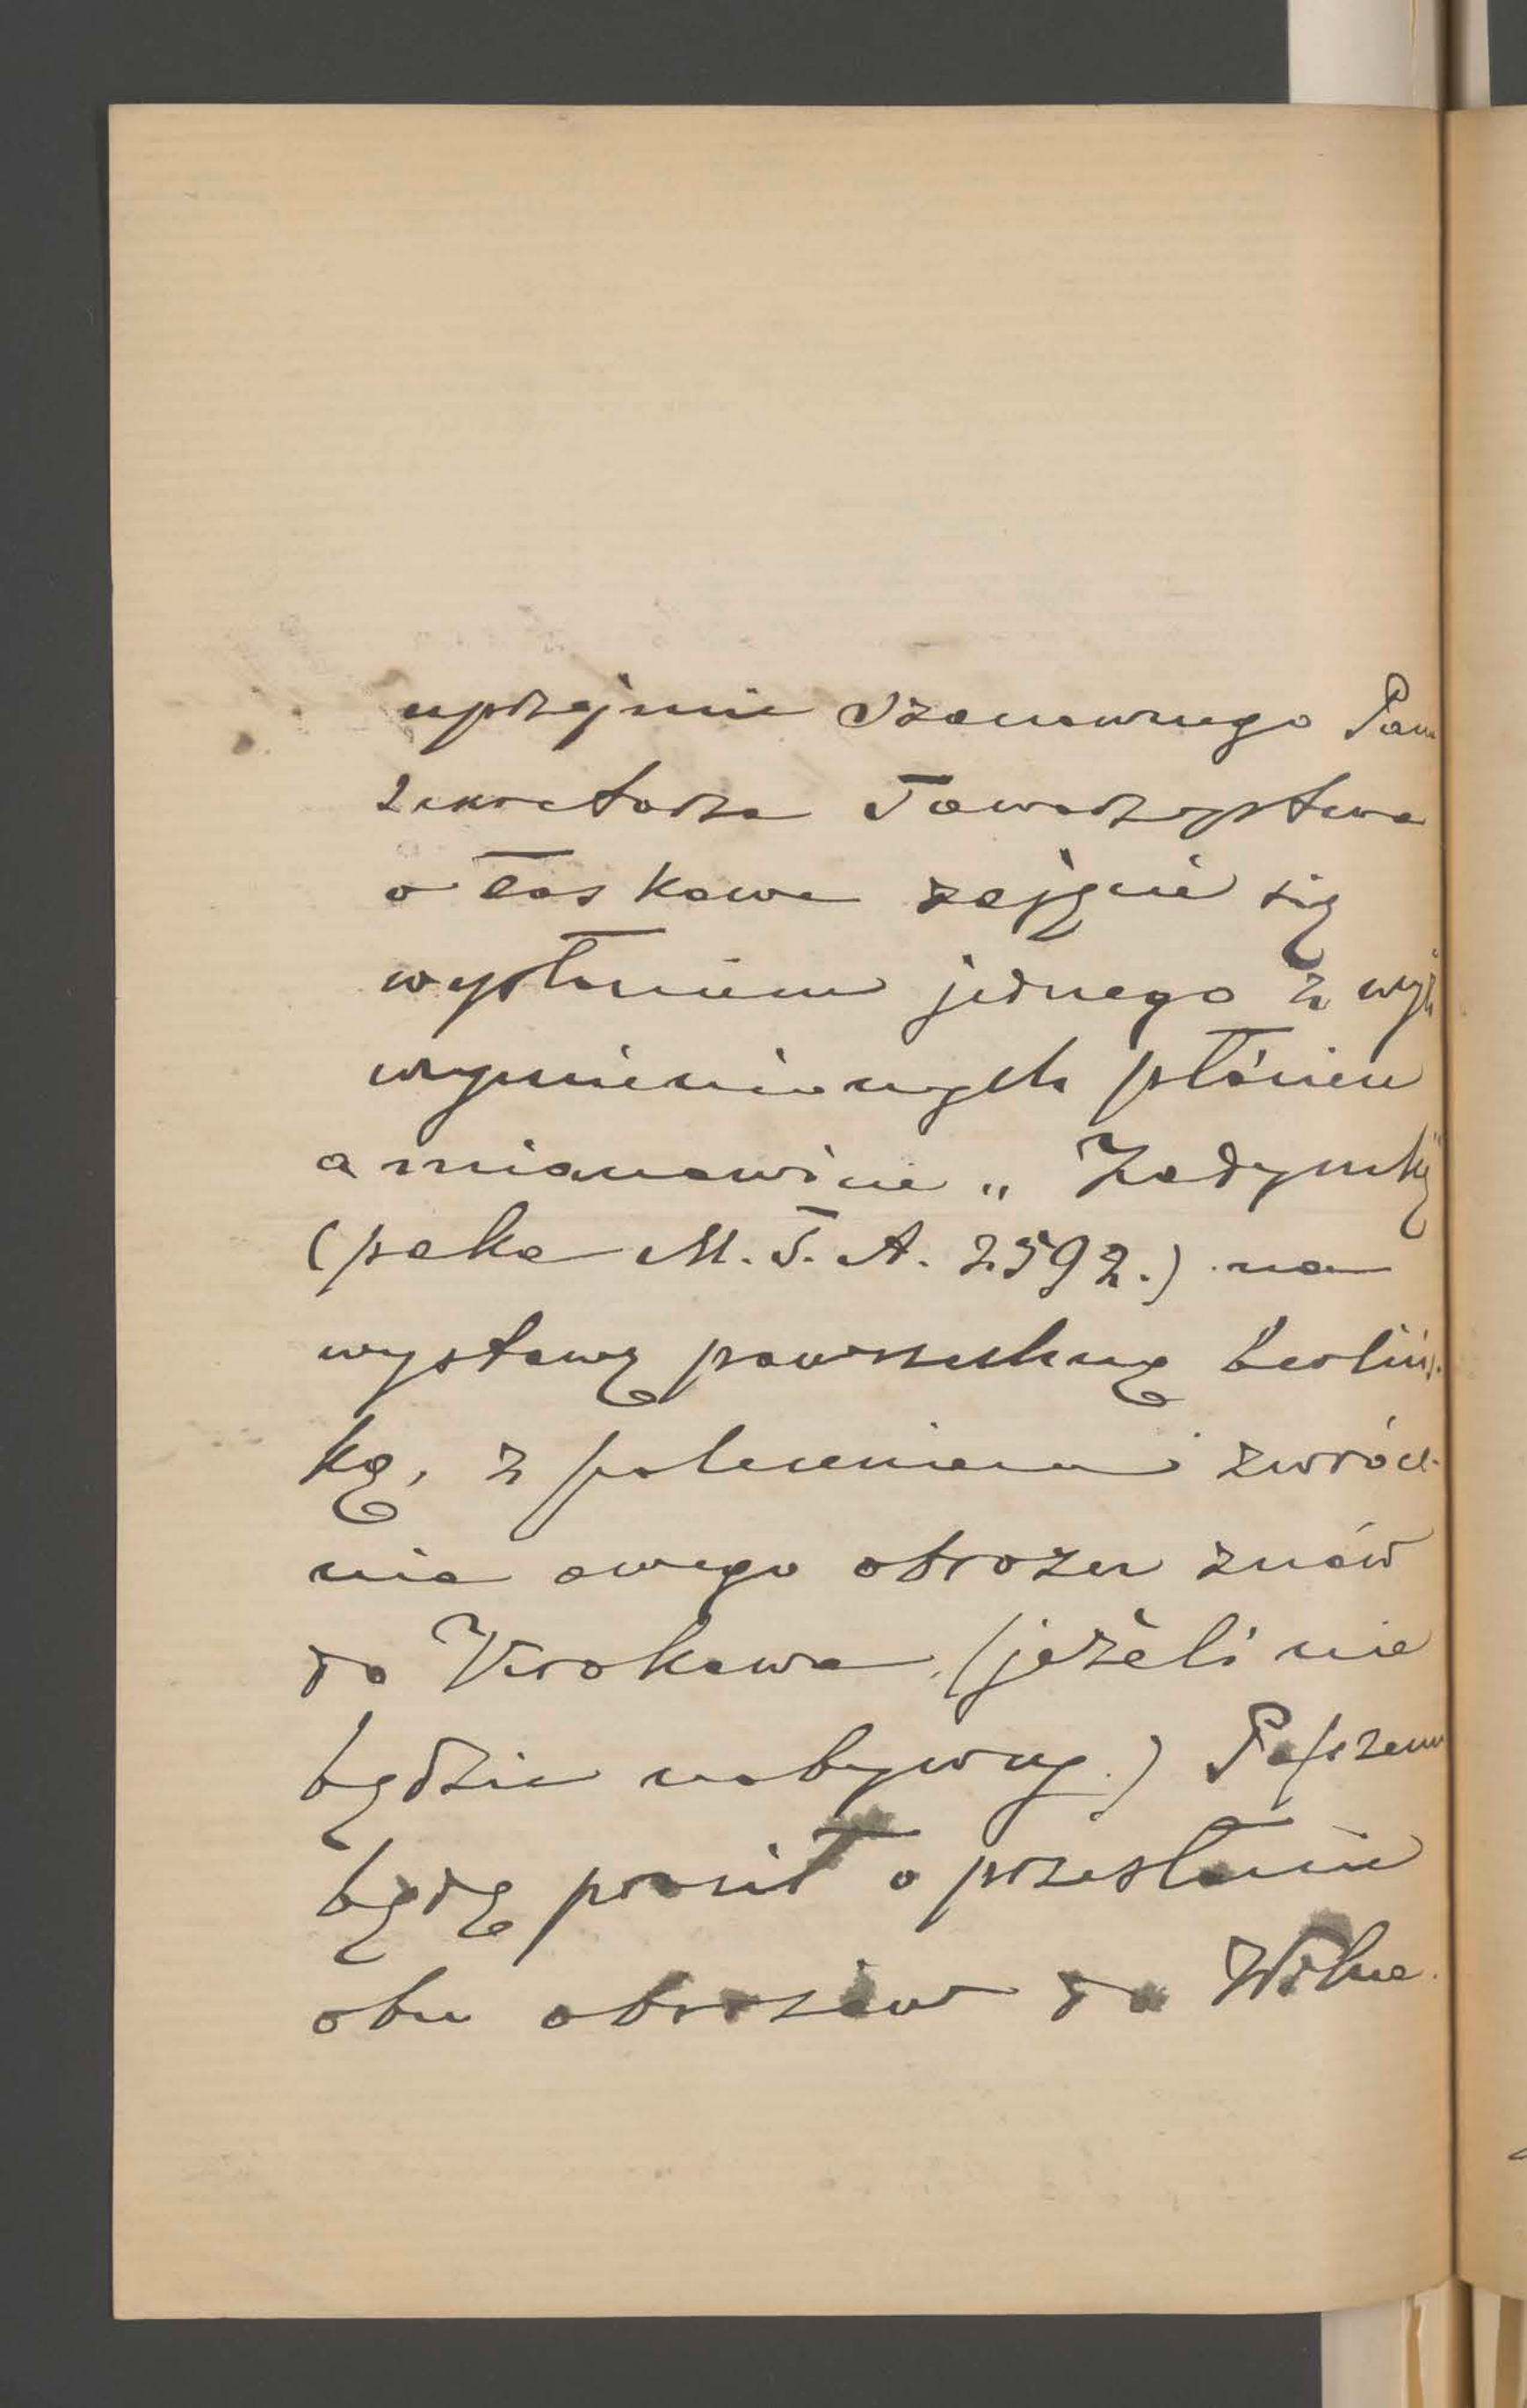 uprzejmie Szanownego Pan
Sekretarza Towarzystwa
o łaskawe zajęcie się
wysłaniem jednego z wyż
wymienionych płócien
a mianowicie „Zadymkę
(paka M.T.A. 2592.) na
wystawę powszechną berliń-
ką, z poleceniem zwróce-
nia owego obrazu znów
do Krakowa (jeżeli nie
będzie nabywcy.) Poczem
będę prosił o przesłanie
obu obrazów do Wilna.